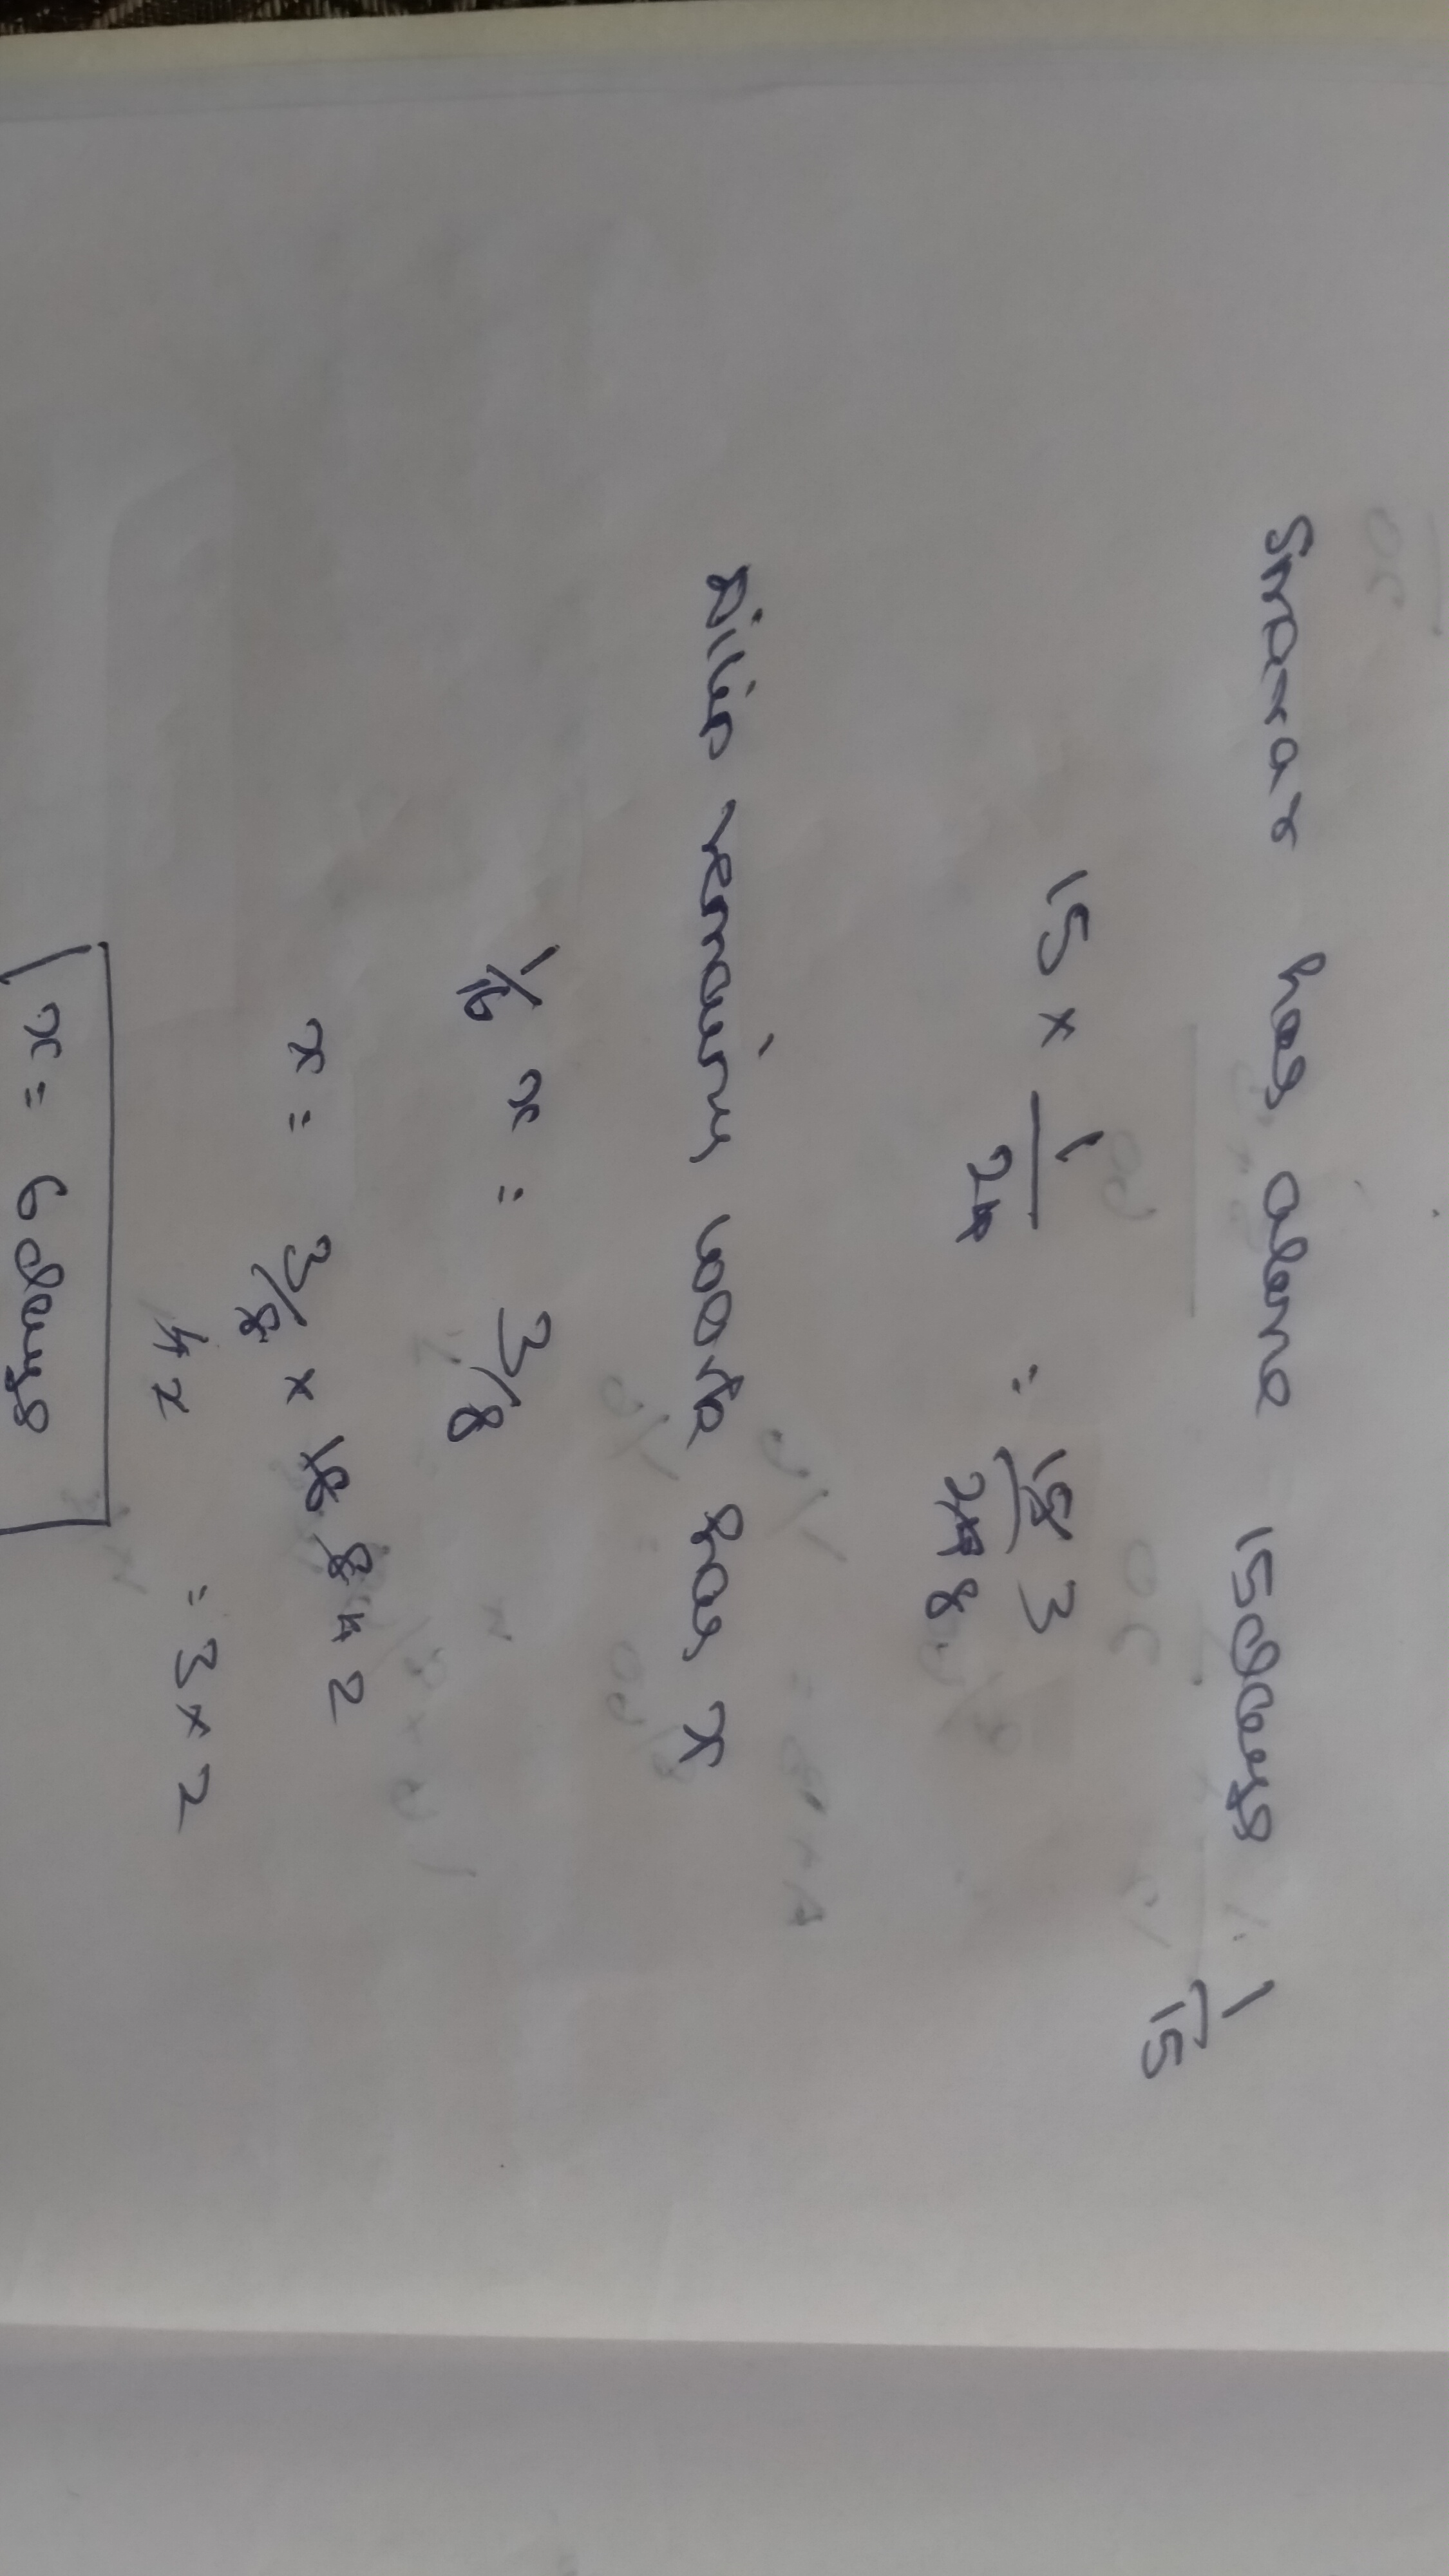 Smarar has alone 15days 1/15
15 x 1/24 = 15/24 3/8
Dilip remaining work has x
1/16 x = 3/8
x = 3/8 x 16 8 4 2
4 2 = 3 x 2
x = 6 days